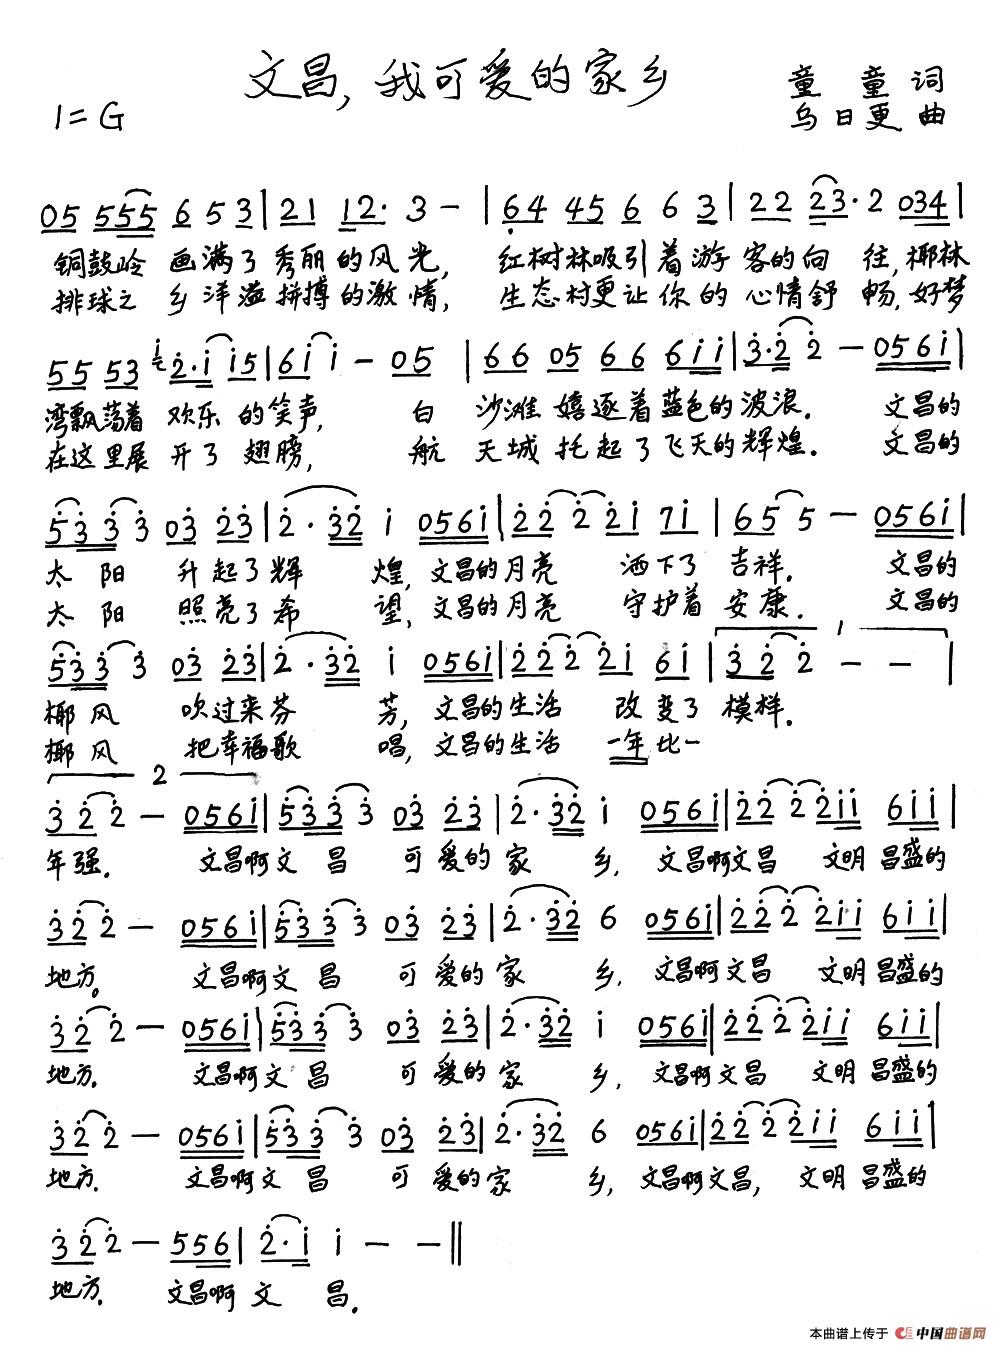 文昌，我可爱的家乡
1=G
童 童 词
乌日更 曲
05 555 6 5 3 | 21 12· 3 — | 64 45 6 6 3 | 22 23· 2 034 |
铜鼓岭 画满了秀丽的风光， 红树林吸引着游客的向 往，椰林
排球之 乡洋溢拼搏的激情， 生态村更让你的心情舒 畅，好梦
55 53 2·i i5 | 6i i — 05 | 66 05 66 6ii | 3·2 2 — 056i |
湾飘荡着 欢乐 的笑声， 白 沙滩 嬉逐着蓝色的波浪。 文昌的
在这里展 开了 翅膀， 航 天城 托起了飞天的辉煌。 文昌的
533 3 03 23 | 2·32 i 056i | 22 2 2i 7i | 65 5 — 056i |
太 阳 升起了辉 煌，文昌的月亮 洒下了 吉祥。 文昌的
太 阳 照亮了希 望，文昌的月亮 守护着 安康． 文昌的
1
533 3 03 23 | 2·32 i 056i | 22 2 2i 6i | 32 2 — — |
椰风 吹过来芬 芳，文昌的生活 改变了 模样．
椰风 把幸福歌 唱，文昌的生活 一年比一
2
32 2 — 056i | 533 3 03 23 | 2·32 i 056i | 22 2 2ii 6ii |
年强． 文昌啊文 昌 可爱的家 乡，文昌啊文昌 文明昌盛的
32 2 — 056i | 533 3 03 23 | 2·32 6 056i | 22 2 2ii 6ii |
地方。 文昌啊文昌 可爱的家 乡，文昌啊文昌 文明昌盛的
32 2 — 056i | 533 3 03 23 | 2·32 i 056i | 22 2 2ii 6ii |
地方． 文昌啊文昌 可爱的家 乡，文昌啊文昌 文明昌盛的
32 2 — 056i | 533 3 03 23 | 2·32 6 056i | 22 2 2ii 6ii |
地方． 文昌啊文昌 可爱的家 乡，文昌啊文昌， 文明昌盛的
32 2 — 556 | 2·i i — — ‖
地方． 文昌啊文 昌．
本曲谱上传于 中国曲谱网